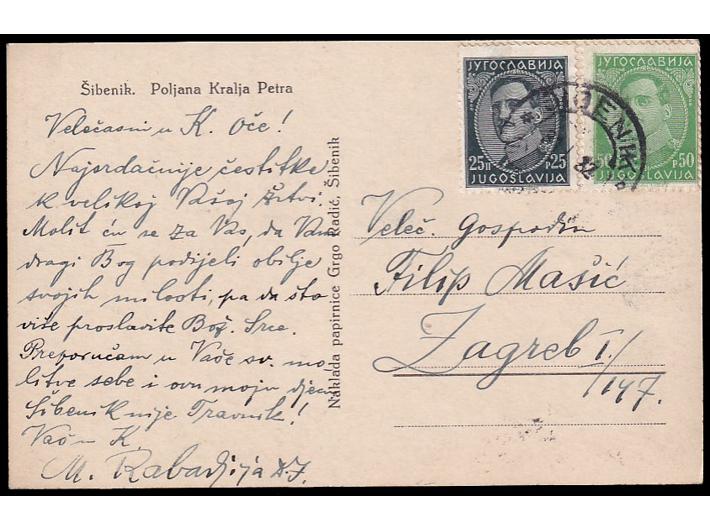 Šibenik. Poljana Kralja Petra
Velečasni u K. Oče!
Najsrdačnije čestitke
k velikoj Vašoj žrtvi.
Molit ću se za Vas, da Vam
dragi Bog podijeli obilje
svojih milosti, pa da što
više proslavite Bož. Srce.
Preporučam u Vaše sv. mo-
litve sebe i ovu moju djecu
Šibenik nije Travnik!
Vaš u K.
M. Rabadjija D.I.
Naklada papirnice Grgo Radić, Šibenik
ЈУГОСЛАВИЈА
25П Р25
JUGOSLAVIJA
ЈУГОСЛАВИЈА
50 Р50
JUGOSLAVIJA
ŠIBENIK
Veleč. Gospodin
Filip Mašić
Zagreb I./
I/147.